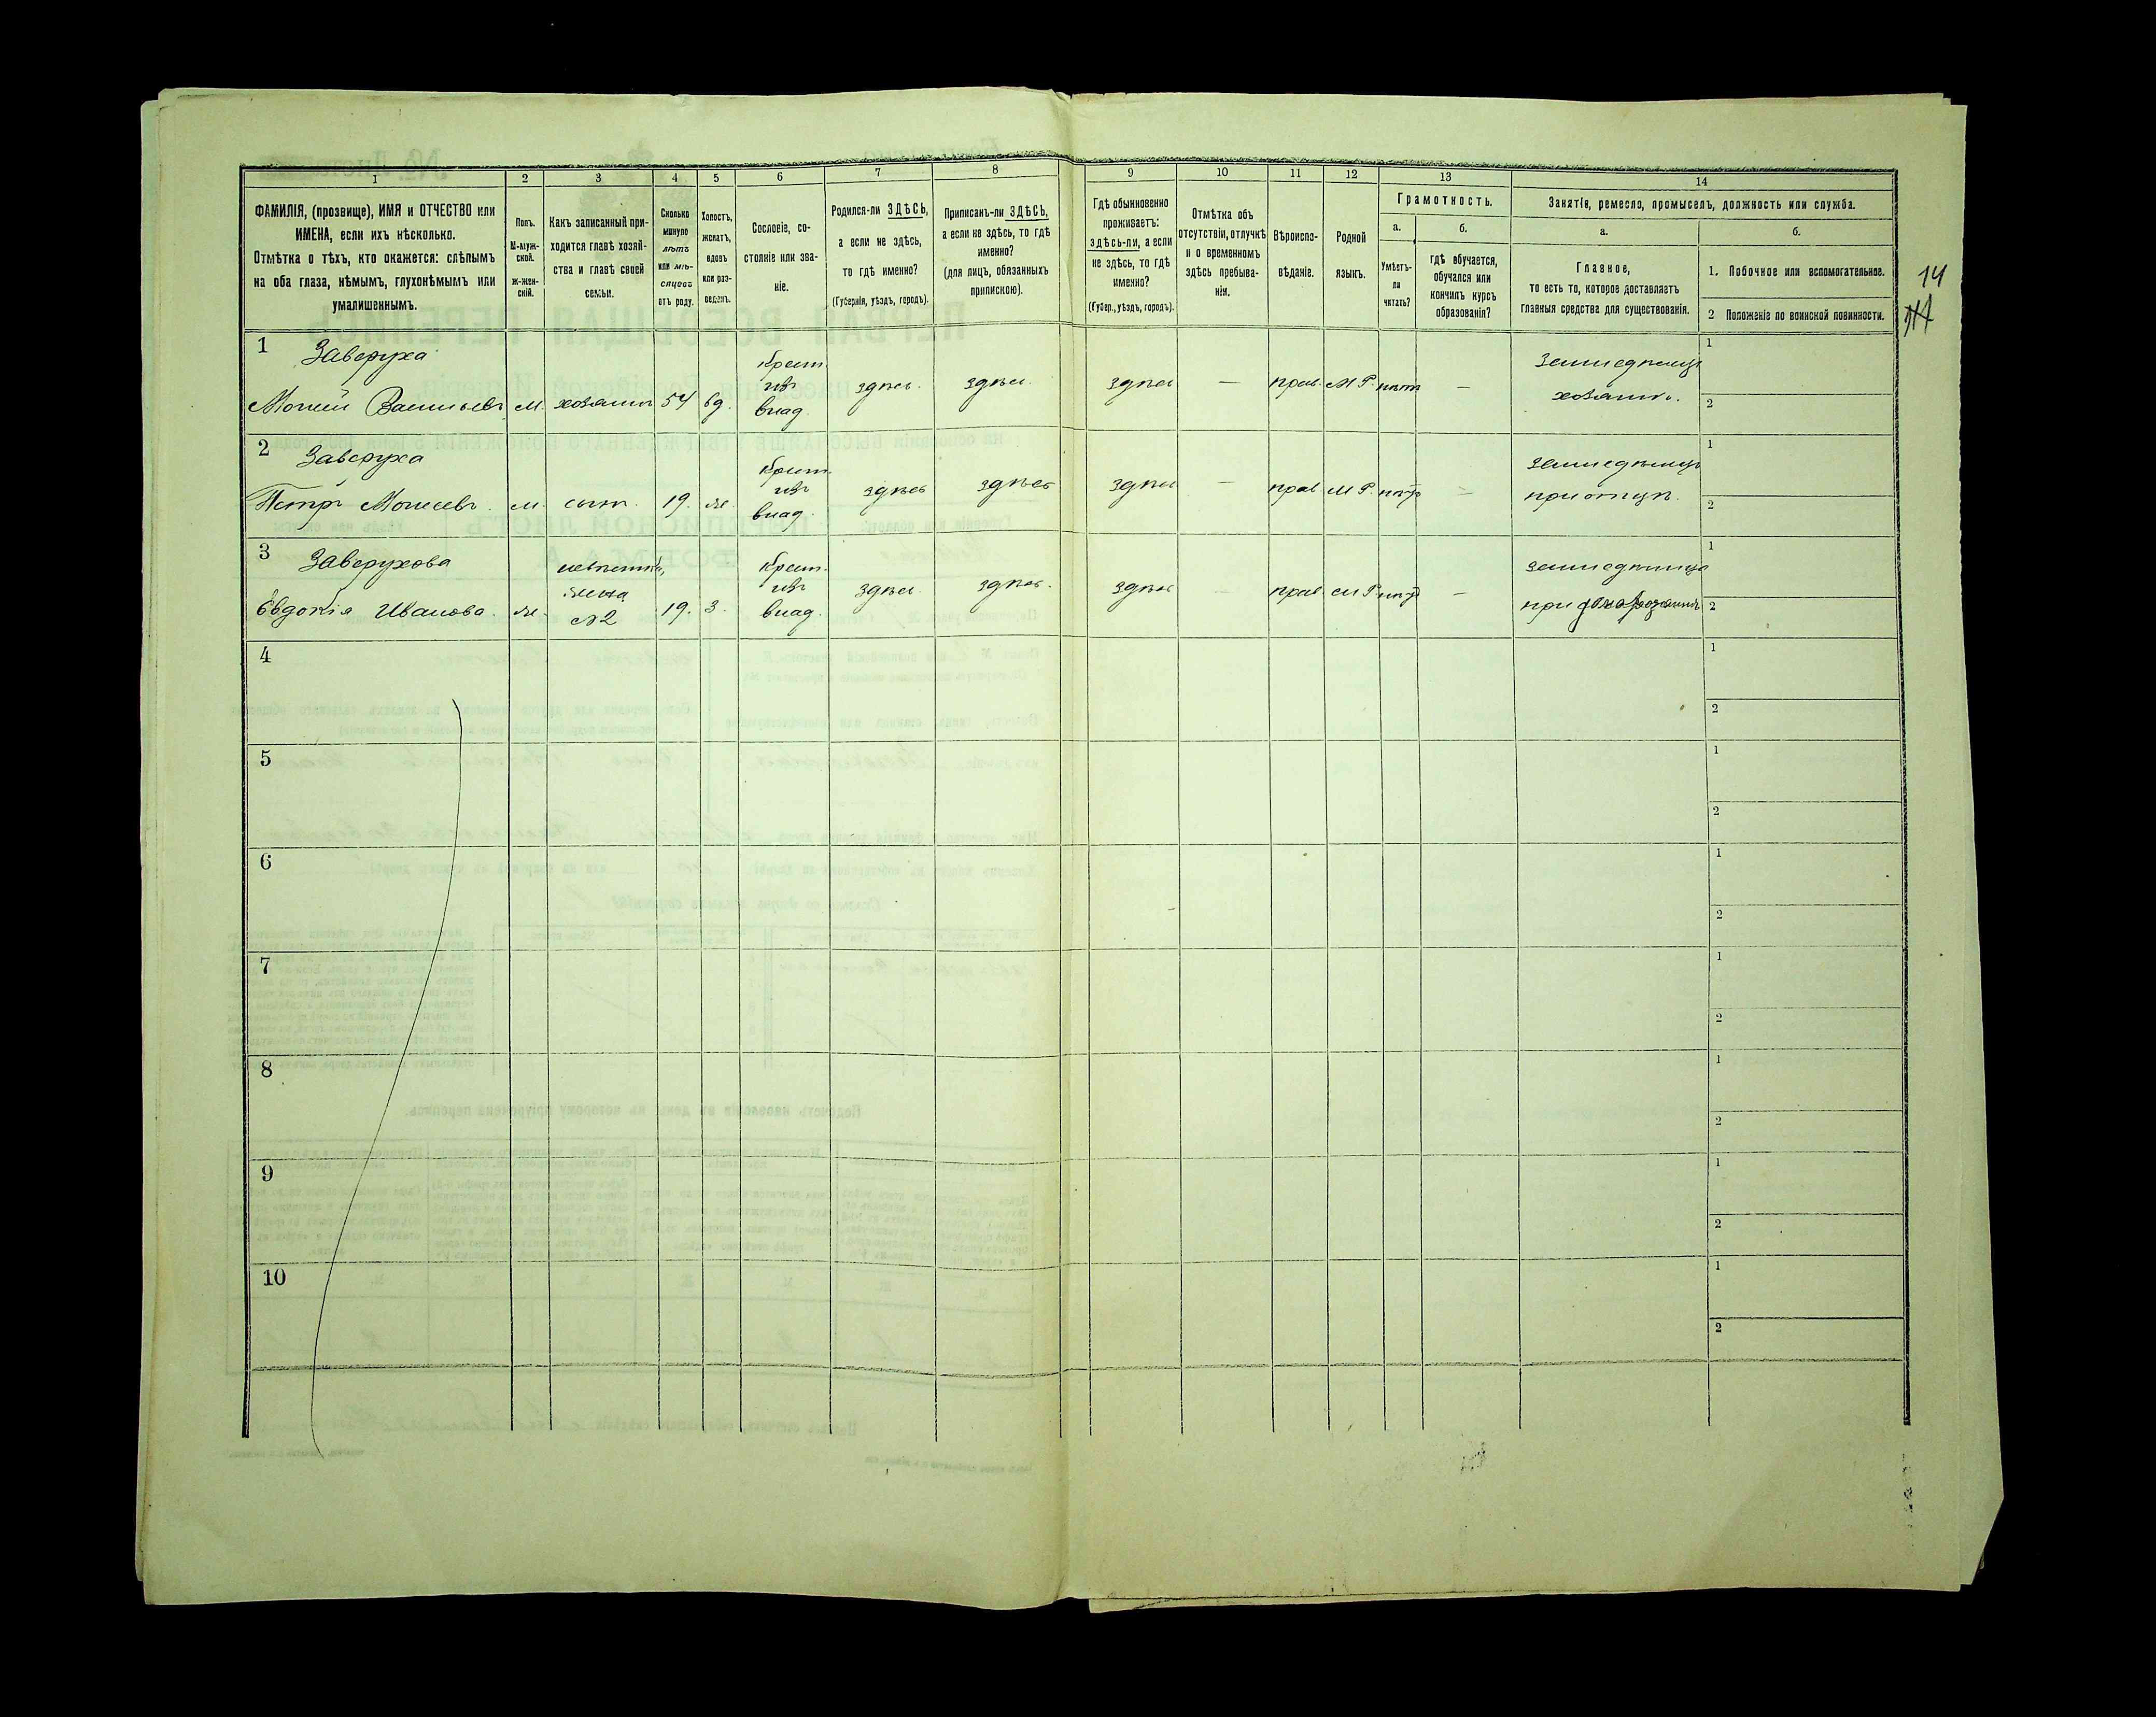 1 2 3 4 5 6 7 8 9 10 11 12 13 14
ФАМИЛІЯ, (прозвище), ИМЯ и ОТЧЕСТВО или
ИМЕНА, если ихъ нѣсколько.
Отмѣтка о тѣхъ, кто окажется: слѣпымъ
на оба глаза, нѣмымъ, глухонѣмымъ или
умалишеннымъ.
Полъ.
М-муж-
ской.
ж-жен-
скій.
Какъ записанный при-
ходится главѣ хозяй-
ства и главѣ своей
семьи.
Сколько
минуло
лѣтъ
или мѣ-
сяцевъ
отъ роду.
Холостъ,
женатъ,
вдовъ
или раз-
веденъ.
Сословіе, со-
стояніе или зва-
ніе.
Родился-ли ЗДѢСЬ,
а если не здѣсь,
то гдѣ именно?
(Губернія, уѣздъ, городъ).
Приписанъ-ли ЗДѢСЬ,
а если не здѣсь, то гдѣ
именно?
(для лицъ, обязанныхъ
припискою).
Гдѣ обыкновенно
проживаетъ:
здѣсь-ли, а если
не здѣсь, то гдѣ
именно?
(Губер., уѣздъ, городъ).
Отмѣтка объ
отсутствіи, отлучкѣ
и о временномъ
здѣсь пребыва-
ніи.
Вѣроиспо-
вѣданіе.
Родной
языкъ.
Грамотность.
а.
Умѣетъ-
ли
читать?
б.
гдѣ обучается,
обучался или
кончилъ курсъ
образованія?
Занятіе, ремесло, промыселъ, должность или служба.
а.
Главное,
то есть то, которое доставляетъ
главныя средства для существованія.
б.
1. Побочное или вспомогательное.
2 Положеніе по воинской повинности.
14
1 Заверуха
Моисей Васильевъ м. хозяинъ 54 вд. Крест. изъ влад. здѣсь здѣсь здѣсь — прав. М.Р. нѣтъ —
земледѣлецъ
хозяинъ.
1
2
2 Заверуха
Петръ Моисеевъ м. сынъ 19. ж. Крест. изъ влад. здѣсь здѣсь здѣсь — прав. М.Р. нѣтъ —
земледѣлецъ
при отцѣ.
1
2
3 Заверухова
Евдокія Иванова. ж. невѣстка, жена №2 19. з. Крест. изъ влад. здѣсь здѣсь. здѣсь — прав М.Р. нѣтъ —
при
1
2
4
1
2
5
1
2
6
1
2
7
1
2
8
1
2
9
1
2
10
1
2